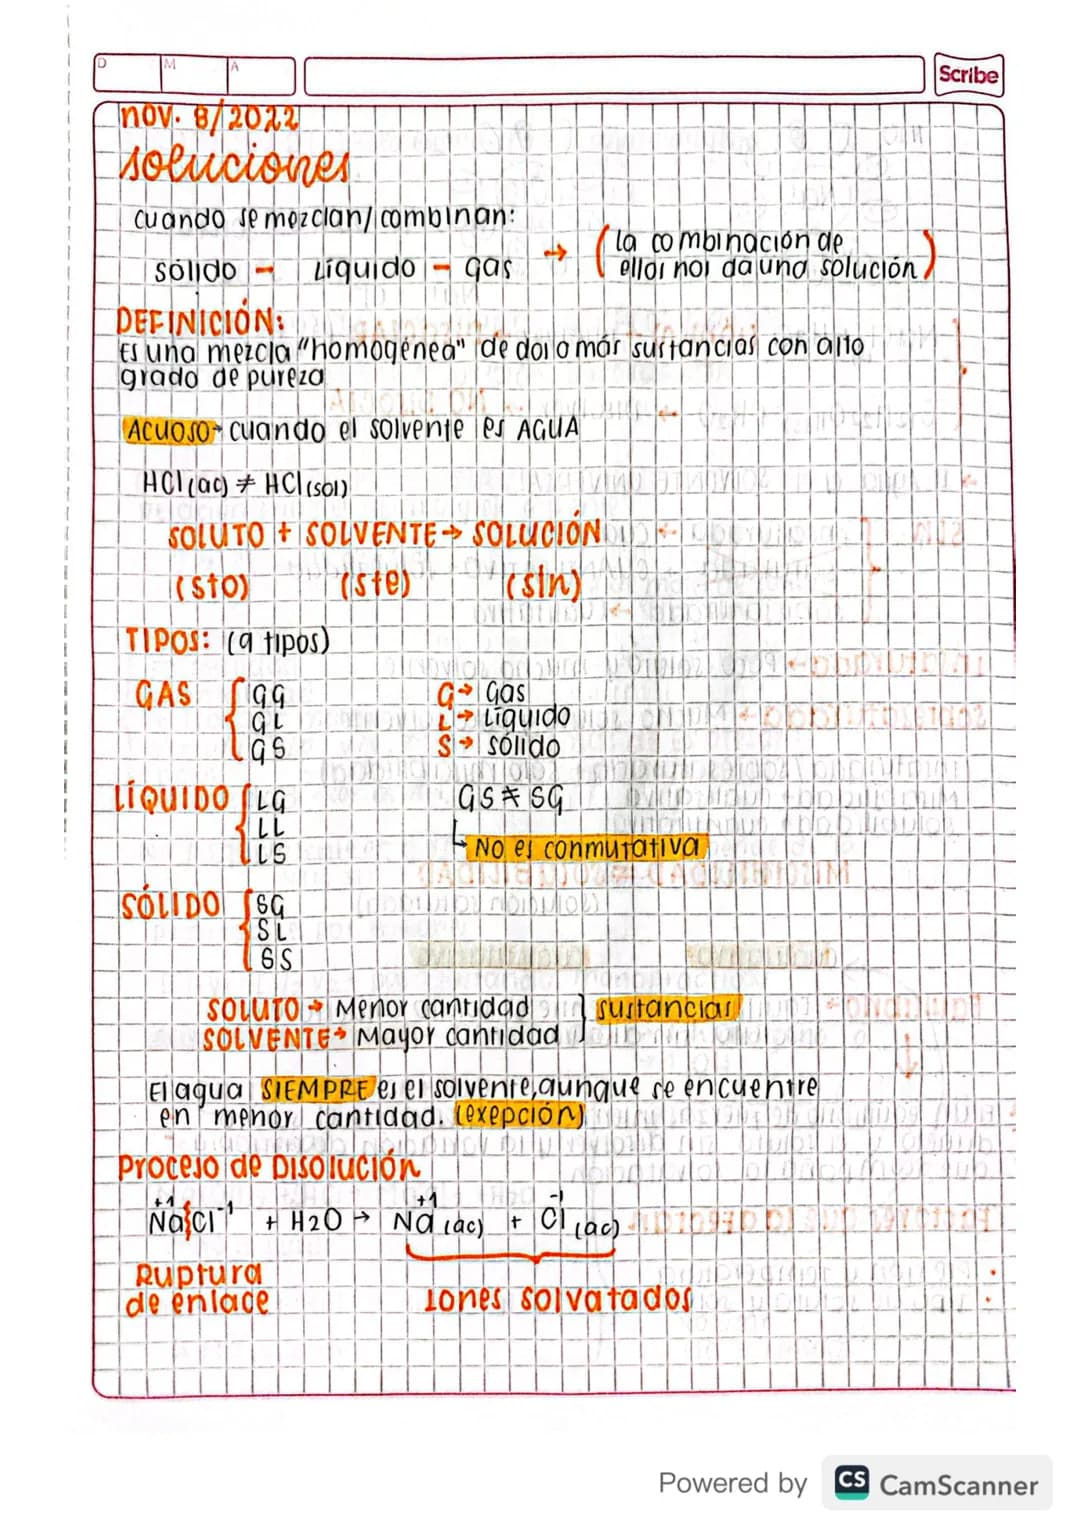 D M A
Scribe
nov. 8/2022
soluciones
cuando se mezclan/combinan:
sólido - Líquido - gas → (la combinación de
ellos nos da una solución)
DEFINICIÓN:
Es una mezcla "homogénea" de dos o más sustancias con alto
grado de pureza
ACUOSO→ cuando el solvente es AGUA
HCl(ac) ≠ HCl(sol)
SOLUTO + SOLVENTE→ SOLUCIÓN
(sto) (ste) (sln)
TIPOS: (9 tipos)
GAS { GG
GL
GS
G→ Gas
L→ Líquido
S→ sólido
LÍQUIDO { LG
LL
LS
GS ≠ SG
No es conmutativa
SÓLIDO { SG
SL
SS
SOLUTO → Menor cantidad
SOLVENTE→ Mayor cantidad } sustancias
El agua SIEMPRE es el solvente, aunque se encuentre
en menor cantidad. (exepción)
Proceso de DISOLUCIÓN
Na⁺¹Cl⁻¹ + H2O → Na⁺¹(ac) + Cl⁻¹(ac)
Ruptura
de enlace
Iones solvatados
Powered by CS CamScanner